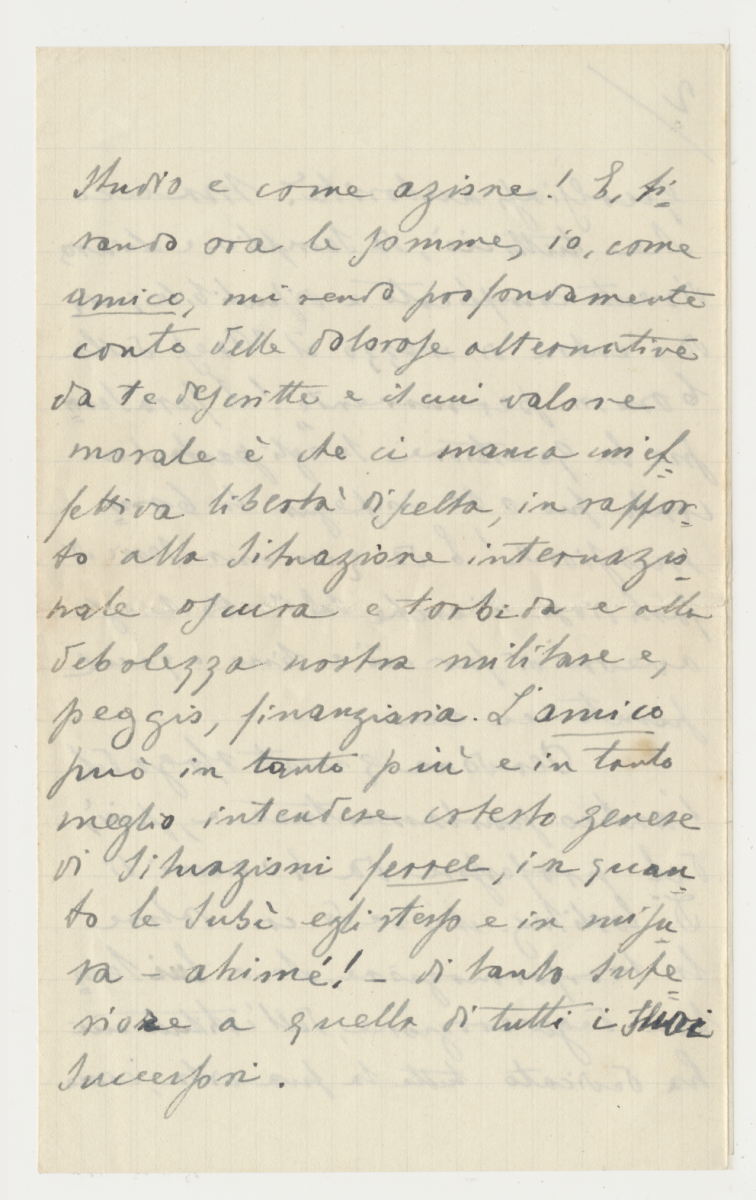 Studio e come azione! E, ti=
rando ora le somme, io, come
amico, mi rendo profondamente
conto delle dolorose alternative
da te descritte e il cui valore
morale è che ci manca un'ef=
fettiva libertà di scelta, in rappor=
to alla situazione internazio=
nale oscura e torbida e alla
debolezza nostra militare e,
peggio, finanziaria. L'amico
può in tanto più e in tanto
meglio intendere cotesto genere
di situazioni ferree, in quan=
to le subì egli stesso e in misu=
ra - ahimé! - di tanto supe=
riore a quella di tutti i suoi
successori.